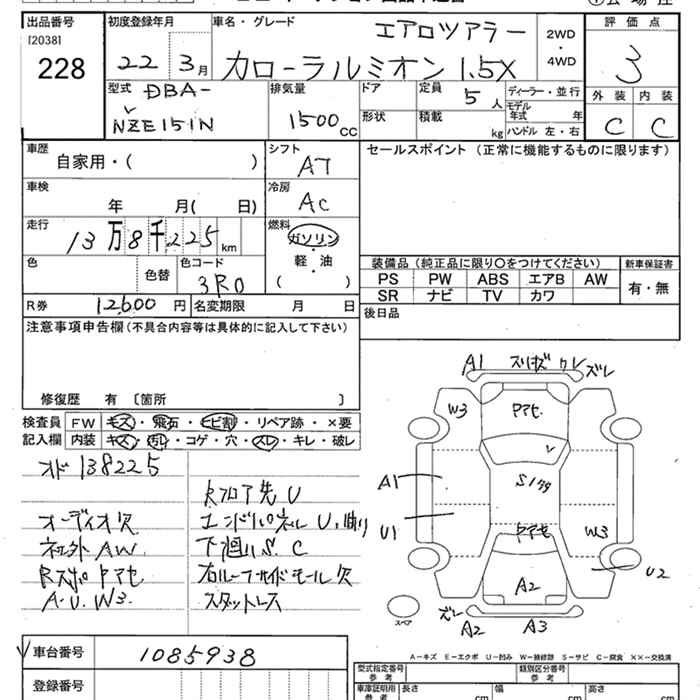 出品番号
[2038]
228
初度登録年月
22年 3月
車名・グレード
エアロツアラー
カローラルミオン 1.5X
2WD
・
4WD
評価点
3
外装 内装
C C
型式
DBA-
NZE151N
排気量
1500 CC
ドア
定員 5人
形状
積載 kg
ディーラー・並行
モデル年式 年
ハンドル 左・右
車歴
自家用・( )
シフト
AT
セールスポイント(正常に機能するものに限ります)
車検
年 月( 日)
冷房
AC
走行
13万8千225km
燃料
ガソリン
・
軽・油
・
( )
色
色替
色コード
3R0
装備品(純正品に限り○をつけてください)
新車保証書
PS PW ABS エアB AW
SR ナビ TV カワ
有・無
R券 12,600円
名変期限 月 日
後日品
注意事項申告欄(不具合内容等は具体的に記入して下さい)
修復歴 有〔箇所 〕
検査員記入欄
FW キズ・飛石・ヒビ割・リペア跡・×要
内装 キズ・汚レ・コゲ・穴・スレ・キレ・破レ
オド 138225
オーディオ欠
ネジ外 AW
A・U、W3
Rフロア先 U
下廻り S、C
スタットレス
A1 スリキズ ワレ ズレ
W3 アセ
A1 S1
U1 W3
U2
A2
ズレ
A2 A3
スペア
A-キズ E-エクボ U-凹み W-補修跡 S-サビ C-腐食 ××-交換済
車台番号 1085938
登録番号
型式指定番号 参考
類別区分番号 参考
車庫証明用 参考
長さ cm
幅 cm
高さ cm